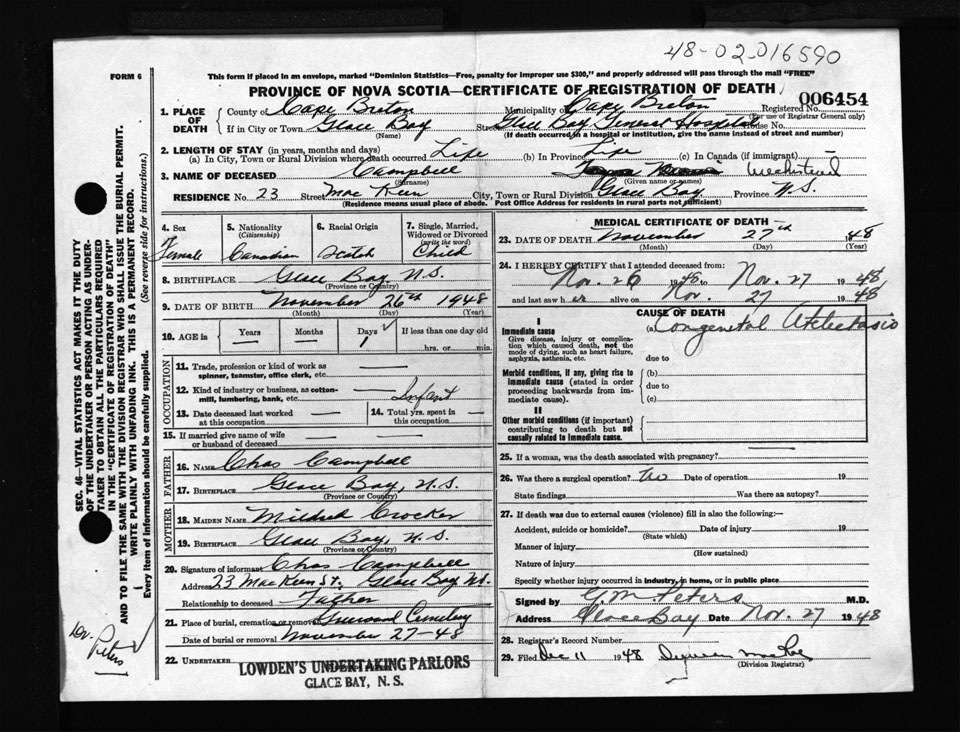 48-02-016590
FORM 6
This form if placed in an envelope, marked "Dominion Statistics—Free, penalty for improper use $300," and properly addressed will pass through the mail "FREE"
PROVINCE OF NOVA SCOTIA—CERTIFICATE OF REGISTRATION OF DEATH
006454
1. PLACE OF DEATH
County of Cape Breton Municipality of Cape Breton Registered No.
(For use of Registrar General only)
If in City or Town Glace Bay Street Glace Bay General Hospital House No.
(Name) (If death occurred in a hospital or institution, give the name instead of street and number)
2. LENGTH OF STAY (in years, months and days)
(a) In City, Town or Rural Division where death occurred Life (b) in Province Life (c) in Canada (if immigrant)
3. NAME OF DECEASED Campbell
(Surname) (Given name or names)
RESIDENCE No. 23 Street Mac Keen City, Town or Rural Division Glace Bay Province N.S.
(Residence means usual place of abode. Post Office Address for residents in rural parts not sufficient)
4. Sex Female
5. Nationality (Citizenship) Canadian
6. Racial Origin Scotch
7. Single, Married, Widowed or Divorced (write the word) Child
8. BIRTHPLACE Glace Bay N.S.
(Province or Country)
9. DATE OF BIRTH November 26th 1948
(Month) (Day) (Year)
10. AGE in Years — Months — Days 1 If less than one day old
hrs. or min.
OCCUPATION
11. Trade, profession or kind of work as spinner, teamster, office clerk, etc. —
12. Kind of industry or business, as cotton-mill, lumbering, bank, etc. Infant
13. Date deceased last worked at this occupation —
14. Total yrs. spent in this occupation —
15. If married give name of wife or husband of deceased —
FATHER
16. NAME Chas Campbell
17. BIRTHPLACE Glace Bay, N.S.
(Province or Country)
MOTHER
18. MAIDEN NAME Mildred Crocker
19. BIRTHPLACE Glace Bay, N.S.
(Province or Country)
20. Signature of informant Chas Campbell
Address 23 MacKeen St. Glace Bay NS.
Relationship to deceased Father
21. Place of burial, cremation or removal Greenwood Cemetery
Date of burial or removal November 27-48
22. UNDERTAKER
LOWDEN'S UNDERTAKING PARLORS
GLACE BAY, N. S.
MEDICAL CERTIFICATE OF DEATH
23. DATE OF DEATH November 27th 1948
(Month) (Day) (Year)
24. I HEREBY CERTIFY that I attended deceased from:
Nov. 26 1948 to Nov. 27 1948
and last saw her alive on Nov. 27 1948
CAUSE OF DEATH
I
Immediate cause
Give disease, injury or complication which caused death, not the mode of dying, such as heart failure, asphyxia, asthenia, etc.
(a) Congenital Atelectasis
due to
Morbid conditions, if any, giving rise to immediate cause (stated in order proceeding backwards from immediate).
(b)
due to
(c)
II
Other morbid conditions (if important) contributing to death but not causally related to immediate cause.
25. If a woman, was the death associated with pregnancy?
26. Was there a surgical operation? No Date of operation 19
State findings Was there an autopsy?
27. If death was due to external causes (violence) fill in also the following:—
Accident, suicide or homicide? Date of injury 19
(State which)
Manner of injury
(How sustained)
Nature of injury
Specify whether injury occurred in industry, in home, or in public place
Signed by G.M. Peters M.D.
Address Glace Bay Date Nov. 27 1948
28. Registrar's Record Number
29. Filed Dec 11 1948
(Division Registrar)
SEC. 46—VITAL STATISTICS ACT MAKES IT THE DUTY
OF THE UNDERTAKER OR PERSON ACTING AS UNDER-
TAKER TO OBTAIN ALL THE PARTICULARS REQUIRED
IN THE "CERTIFICATE OF REGISTRATION OF DEATH"
AND TO FILE THE SAME WITH THE DIVISION REGISTRAR WHO SHALL ISSUE THE BURIAL PERMIT.
WRITE PLAINLY WITH UNFADING INK. THIS IS A PERMANENT RECORD.
Every item of information should be carefully supplied. (See reverse side for instructions.)
Dr. Peters